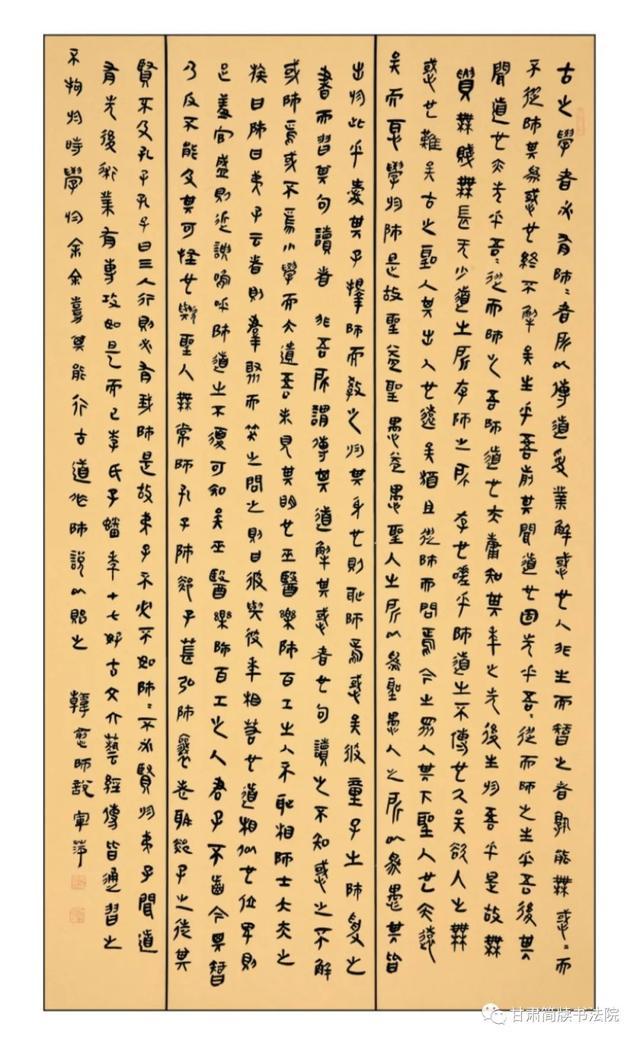 古之學者必有師=者所以傳道受業解惑也人非生而智之者孰能無惑=而
不從師其為惑也終不解矣生乎吾前其聞道也固先乎吾=從而師之生乎吾後其
聞道也亦先乎吾=從而師之吾師道也夫庸知其年之先後生於吾乎是故無
貴無賤無長无少道之所存師之所存也嗟乎師道之不傳也久矣欲人之無
惑也難矣古之聖人其出人也遠矣猶且從師而問焉今之眾人其下聖人也亦遠
矣而恥學於師是故聖益聖愚益愚聖人之所以為聖愚人之所以為愚其皆
出於此乎愛其子擇師而教之於其身也則恥師焉惑矣彼童子之師受之
書而習其句讀者非吾所謂傳其道解其惑者也句讀之不知惑之不解
或師焉或不焉小學而大遺吾未見其明也巫醫樂師百工之人不恥相師士大夫之
族曰師曰弟子云者則羣聚而笑之問之則曰彼與彼年相若也道相似也位卑則
足羞官盛則近諛嗚呼師道之不復可知矣巫醫樂師百工之人君子不齒今其智
乃反不能及其可怪也歟聖人無常師孔子師郯子萇弘師襄老聃郯子之徒其
賢不及孔子孔子曰三人行則必有我師是故弟子不必不如師=不必賢於弟子聞道
有先後術業有專攻如是而已李氏子蟠年十七好古文六藝經傳皆通習之
不拘於時學於余余嘉其能行古道作師說以貽之 韓愈師說 寧萍
甘肃简牍书法院